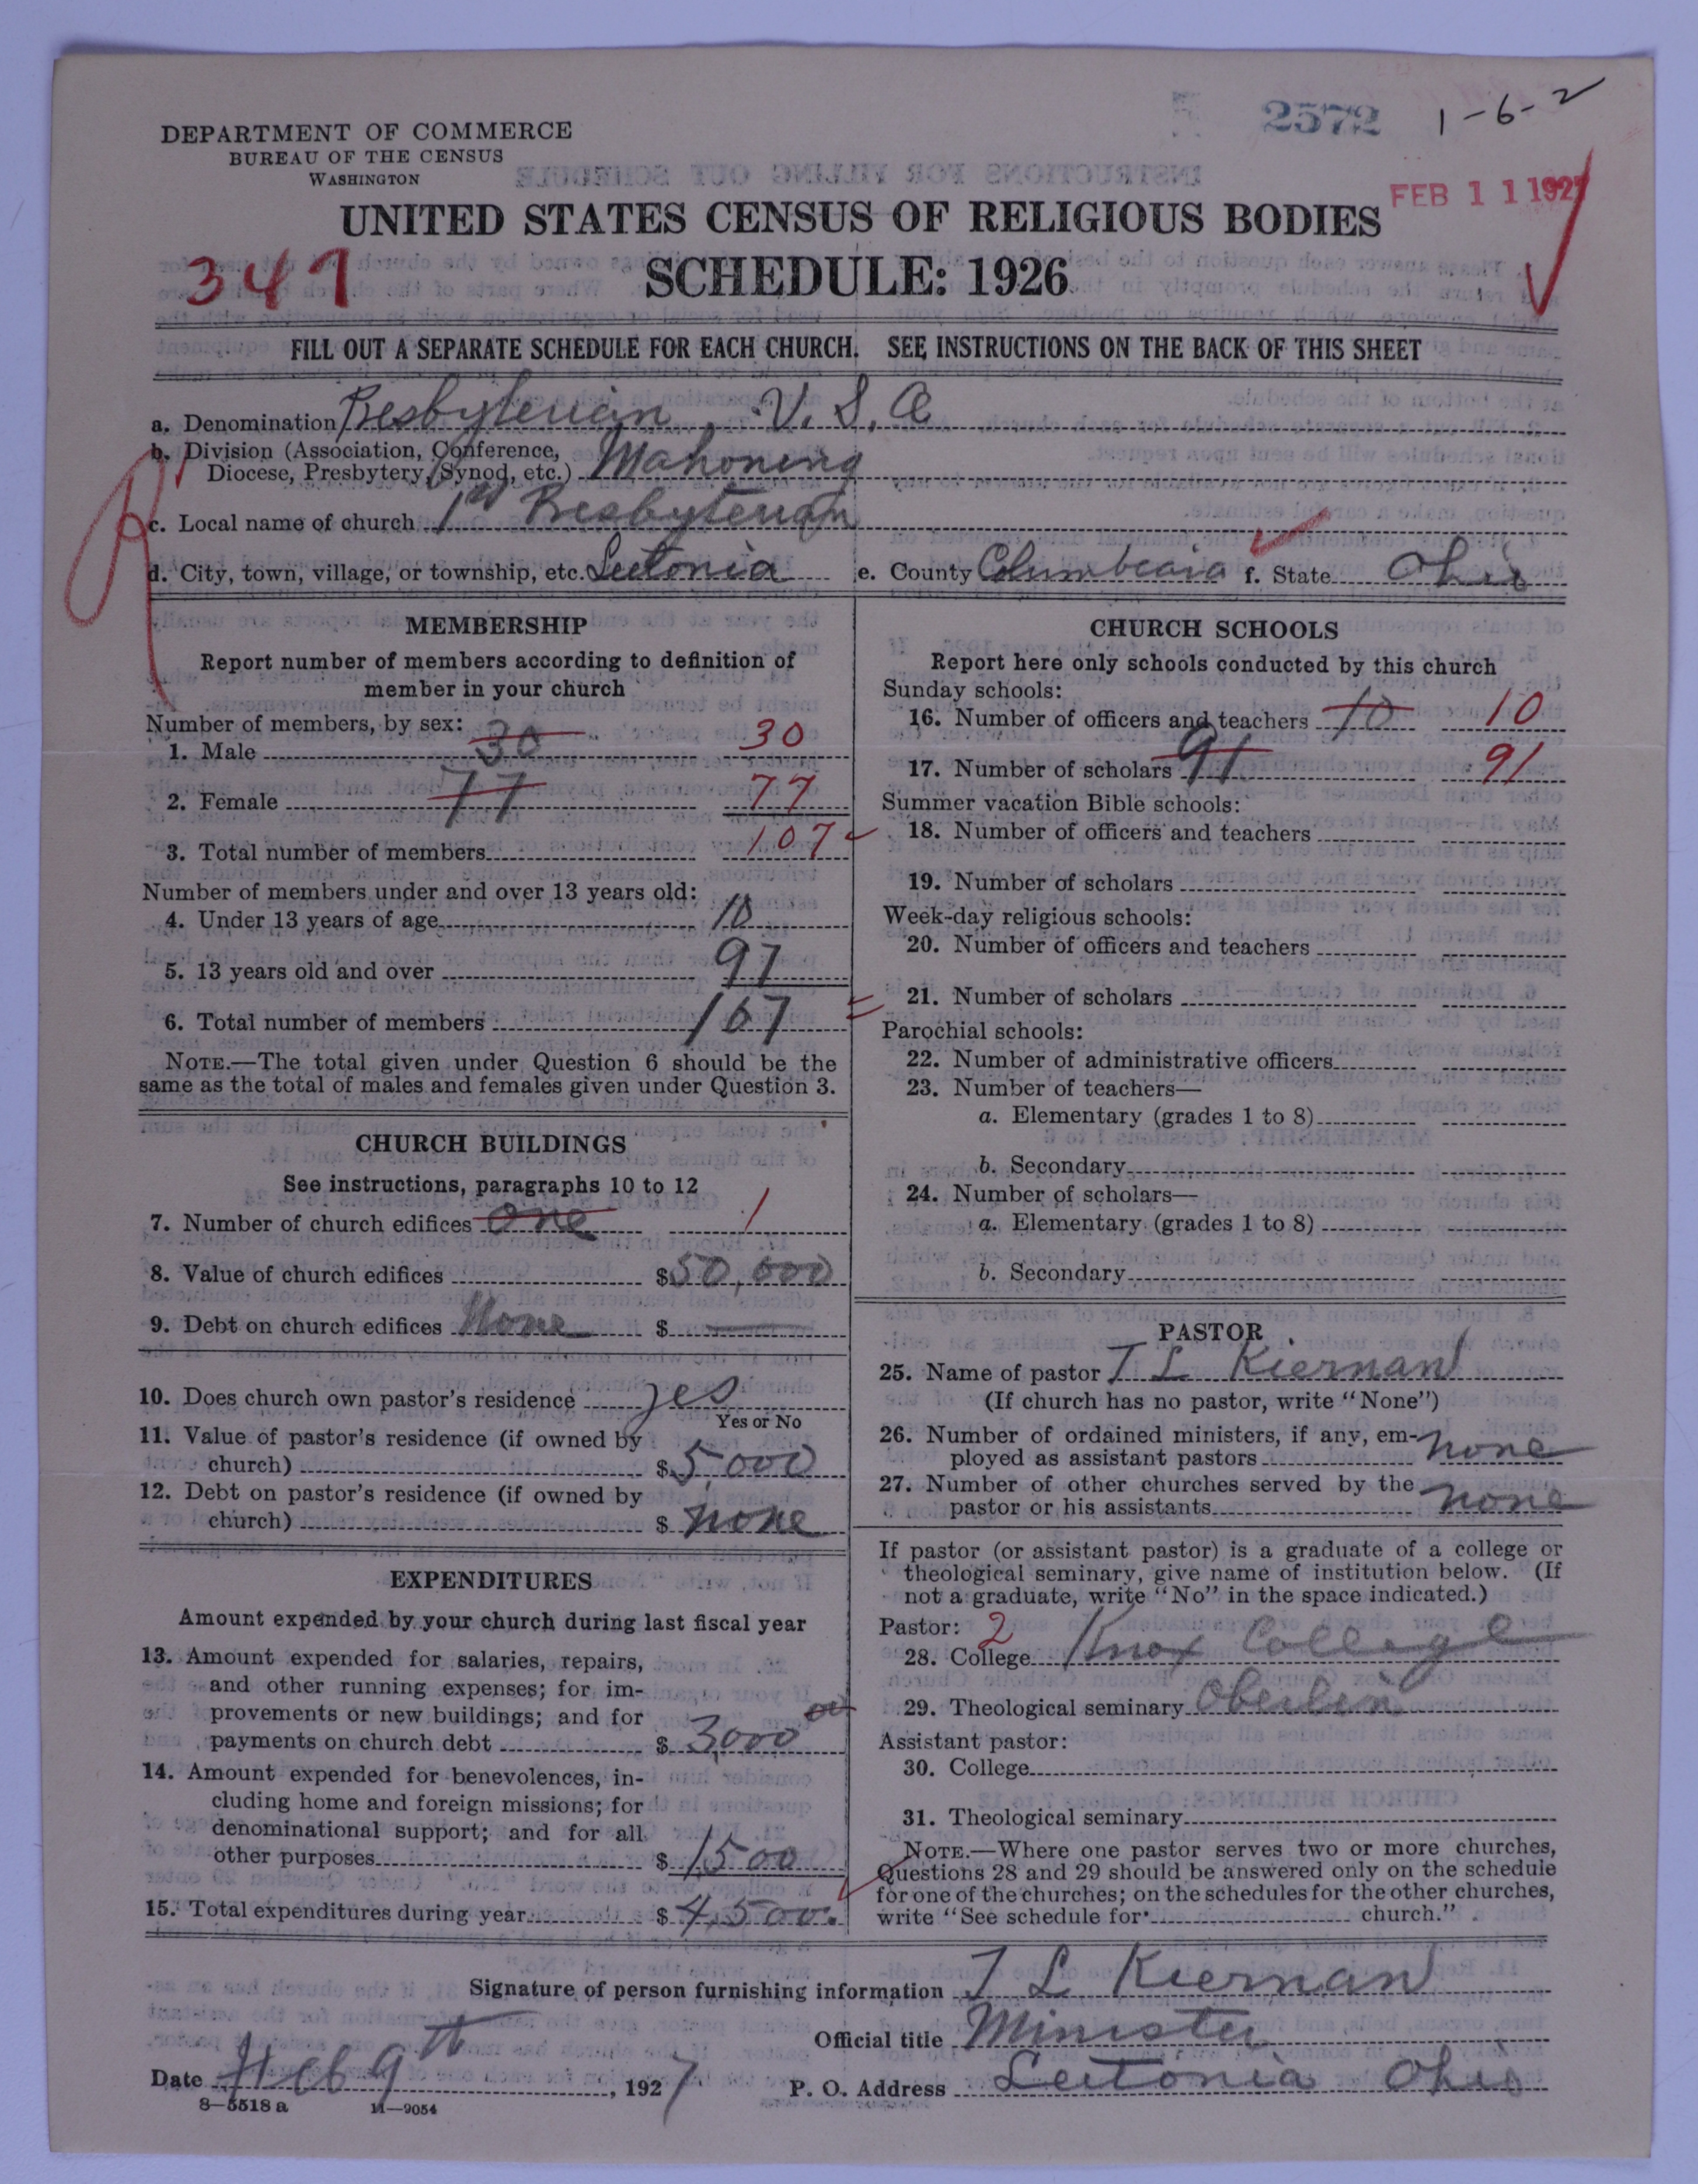 2572 1-6-2
DEPARTMENT OF COMMERCE
BUREAU OF THE CENSUS
WASHINGTON
FEB 11 1927
UNITED STATES CENSUS OF RELIGIOUS BODIES
347
SCHEDULE: 1926
FILL OUT A SEPARATE SCHEDULE FOR EACH CHURCH. SEE INSTRUCTIONS ON THE BACK OF THIS SHEET
a. Denomination Presbyterian U. S. A
b. Division (Association, Conference,
Diocese, Presbytery, Synod, etc.) Mahoning
c. Local name of church 1st Presbyterian
d. City, town, village, or township, etc. Leetonia e. County Columbiana f. State Ohio
MEMBERSHIP
Report number of members according to definition of
member in your church
Number of members, by sex:
1. Male 30 30
2. Female 77 77
3. Total number of members 107
Number of members under and over 13 years old:
4. Under 13 years of age 10
5. 13 years old and over 97
6. Total number of members 107
NOTE.—The total given under Question 6 should be the
same as the total of males and females given under Question 3.
CHURCH BUILDINGS
See instructions, paragraphs 10 to 12
7. Number of church edifices one 1
8. Value of church edifices $50,000
9. Debt on church edifices None $ —
10. Does church own pastor's residence yes
Yes or No
11. Value of pastor's residence (if owned by
church) $5,000
12. Debt on pastor's residence (if owned by
church) $ none
EXPENDITURES
Amount expended by your church during last fiscal year
13. Amount expended for salaries, repairs,
and other running expenses; for im-
provements or new buildings; and for
payments on church debt $ 3,000 00
14. Amount expended for benevolences, in-
cluding home and foreign missions; for
denominational support; and for all
other purposes $ 1500
15. Total expenditures during year $ 4,500.
CHURCH SCHOOLS
Report here only schools conducted by this church
Sunday schools:
16. Number of officers and teachers 10 10
17. Number of scholars 91 91
Summer vacation Bible schools:
18. Number of officers and teachers
19. Number of scholars
Week-day religious schools:
20. Number of officers and teachers
21. Number of scholars
Parochial schools:
22. Number of administrative officers
23. Number of teachers—
a. Elementary (grades 1 to 8)
b. Secondary
24. Number of scholars—
a. Elementary (grades 1 to 8)
b. Secondary
PASTOR
25. Name of pastor T L Kiernan
(If church has no pastor, write "None")
26. Number of ordained ministers, if any, em-
ployed as assistant pastors none
27. Number of other churches served by the
pastor or his assistants none
If pastor (or assistant pastor) is a graduate of a college or
theological seminary, give name of institution below. (If
not a graduate, write "No" in the space indicated.)
Pastor: 2
28. College Knox College
29. Theological seminary Oberlin
Assistant pastor:
30. College
31. Theological seminary
NOTE.—Where one pastor serves two or more churches,
Questions 28 and 29 should be answered only on the schedule
for one of the churches; on the schedules for the other churches,
write "See schedule for church."
Signature of person furnishing information T L Kiernan
Official title Minister
Date Feb 9th, 1927 P. O. Address Leetonia Ohio
8—5518 a 11—9054